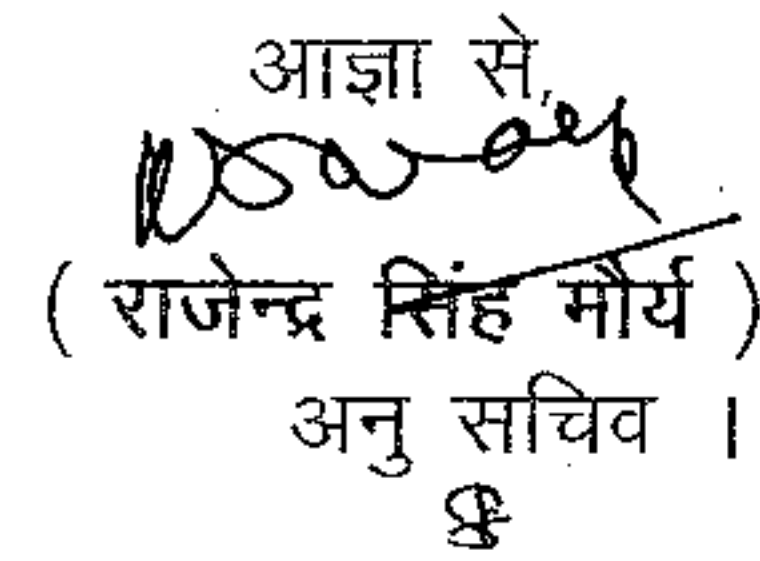 आज्ञा से,
( राजेन्द्र सिंह मौर्य )
अनु सचिव ।